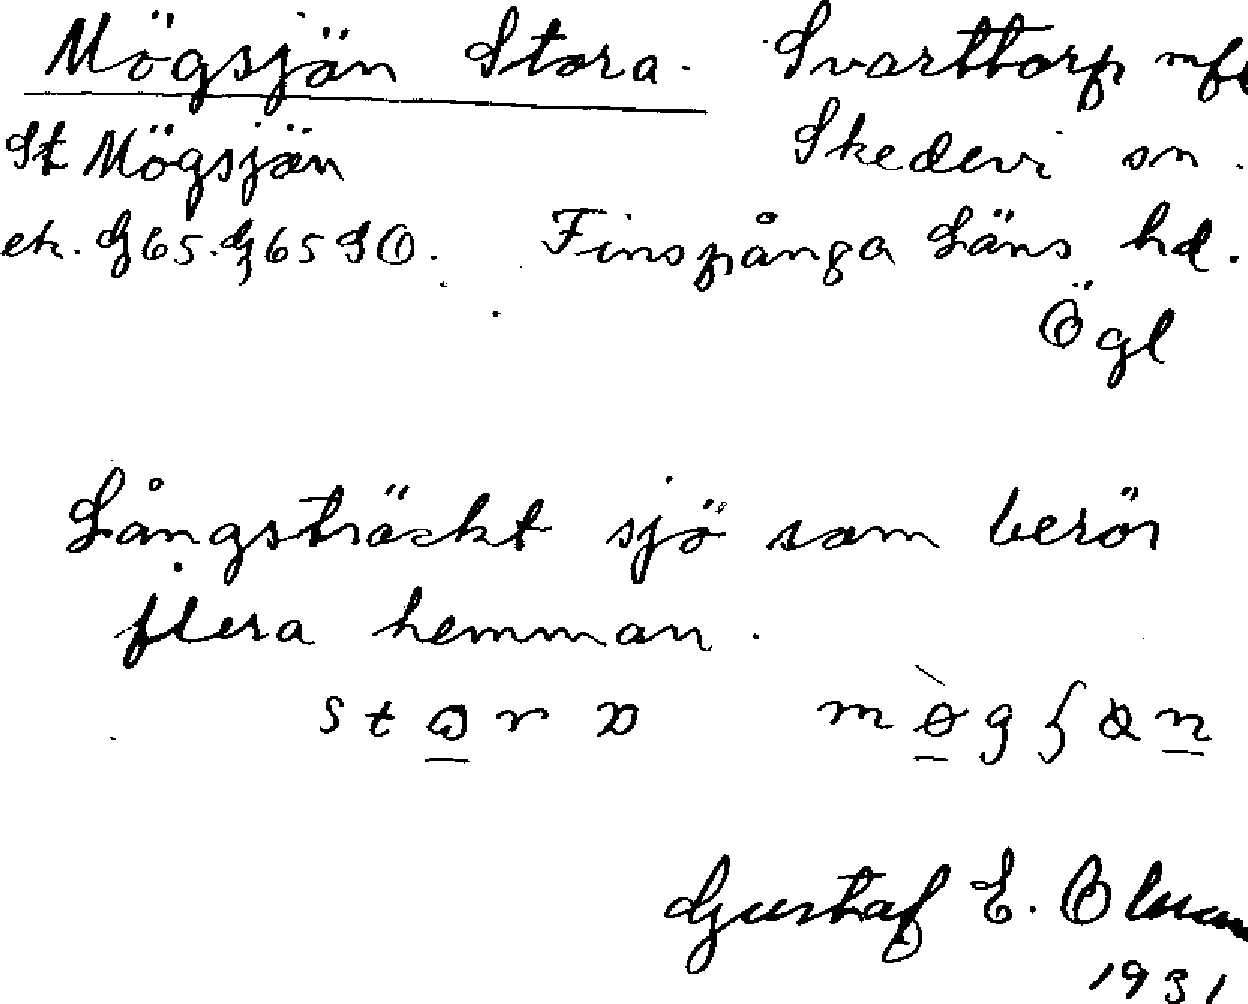 Mögsjön Stora. Svarttorp mfl
St Mögsjön Skedevi sn.
ek. G65. G65 SO. Finspånga Läns hd.
Ögl
Långsträckt sjö som berör
flera hemman.
Gustaf E. Olsson
1931